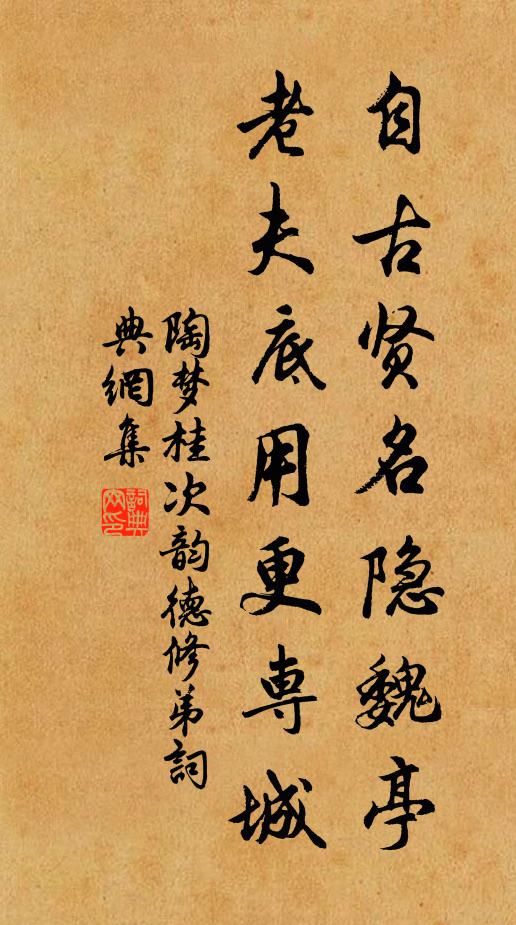 自古贤名隐魏亭
老夫底用更専城
陶梦桂次韵德修弟詞
典網集
詞典网印